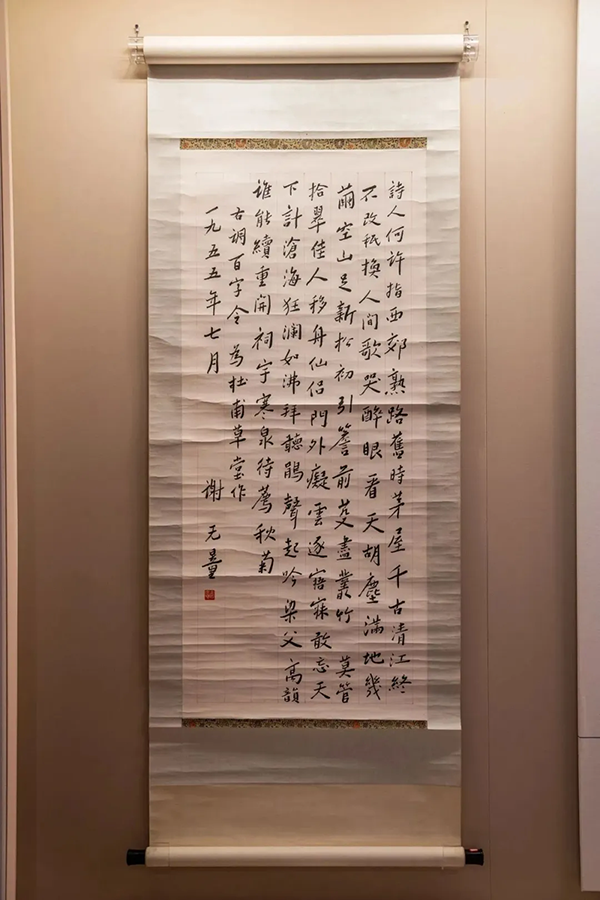 詩人何許指西郊熟路舊時茅屋千古清江終
不改秖換人間歌哭醉眼看天胡塵滿地幾
繭空山足新松初引簷前芟盡叢竹莫管
拾翠佳人移舟仙侶門外癡雲逐寤寐敢忘天
下計滄海狂瀾如沸拜聽鵑聲起吟梁父高韻
誰能續重開祠宇寒泉待薦秋菊
古調百字令 為杜甫草堂作
一九五五年七月 謝无量